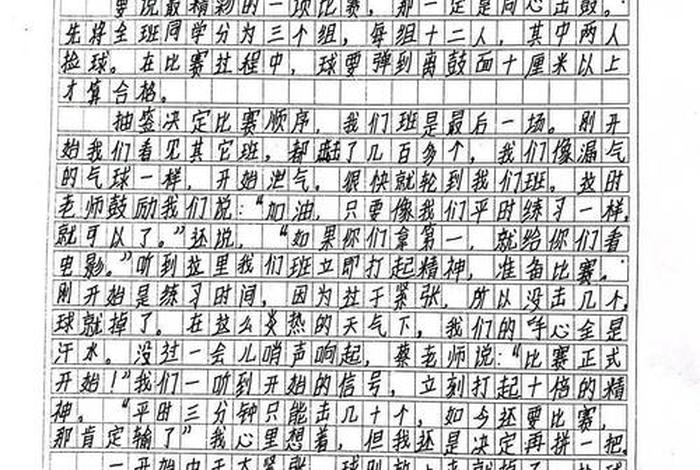 要说最精彩的一项比赛，那一定是同心击鼓。
先将全班同学分为三个组，每组十二人，其中两人
捡球。在比赛过程中，球要弹到离鼓面十厘米以上
才算合格。
抽签决定比赛顺序，我们班是最后一场。刚开
始我们看见其它班，都击了几百多个，我们像漏气
的气球一样，开始泄气。很快就轮到我们班。这时
老师鼓励我们说：“加油，只要像我们平时练习一样，
就可以了。”还说，“如果你们拿第一，就给你们看
电影。”听到这里我们班立即打起精神，准备比赛。
刚开始是练习时间，因为过于紧张，所以没击几个，
球就掉了。在这么炎热的天气下，我们的手心全是
汗水。没过一会儿哨声响起，蔡老师说：“比赛正式
开始！”我们一听到开始的信号，立刻打起十倍的精
神。“平时三分钟只能击几十个，如今还要比赛，
那肯定输了”我心里想着，但我还是决定再拼一把。
一开始由于太紧张，球刚放上去就掉了